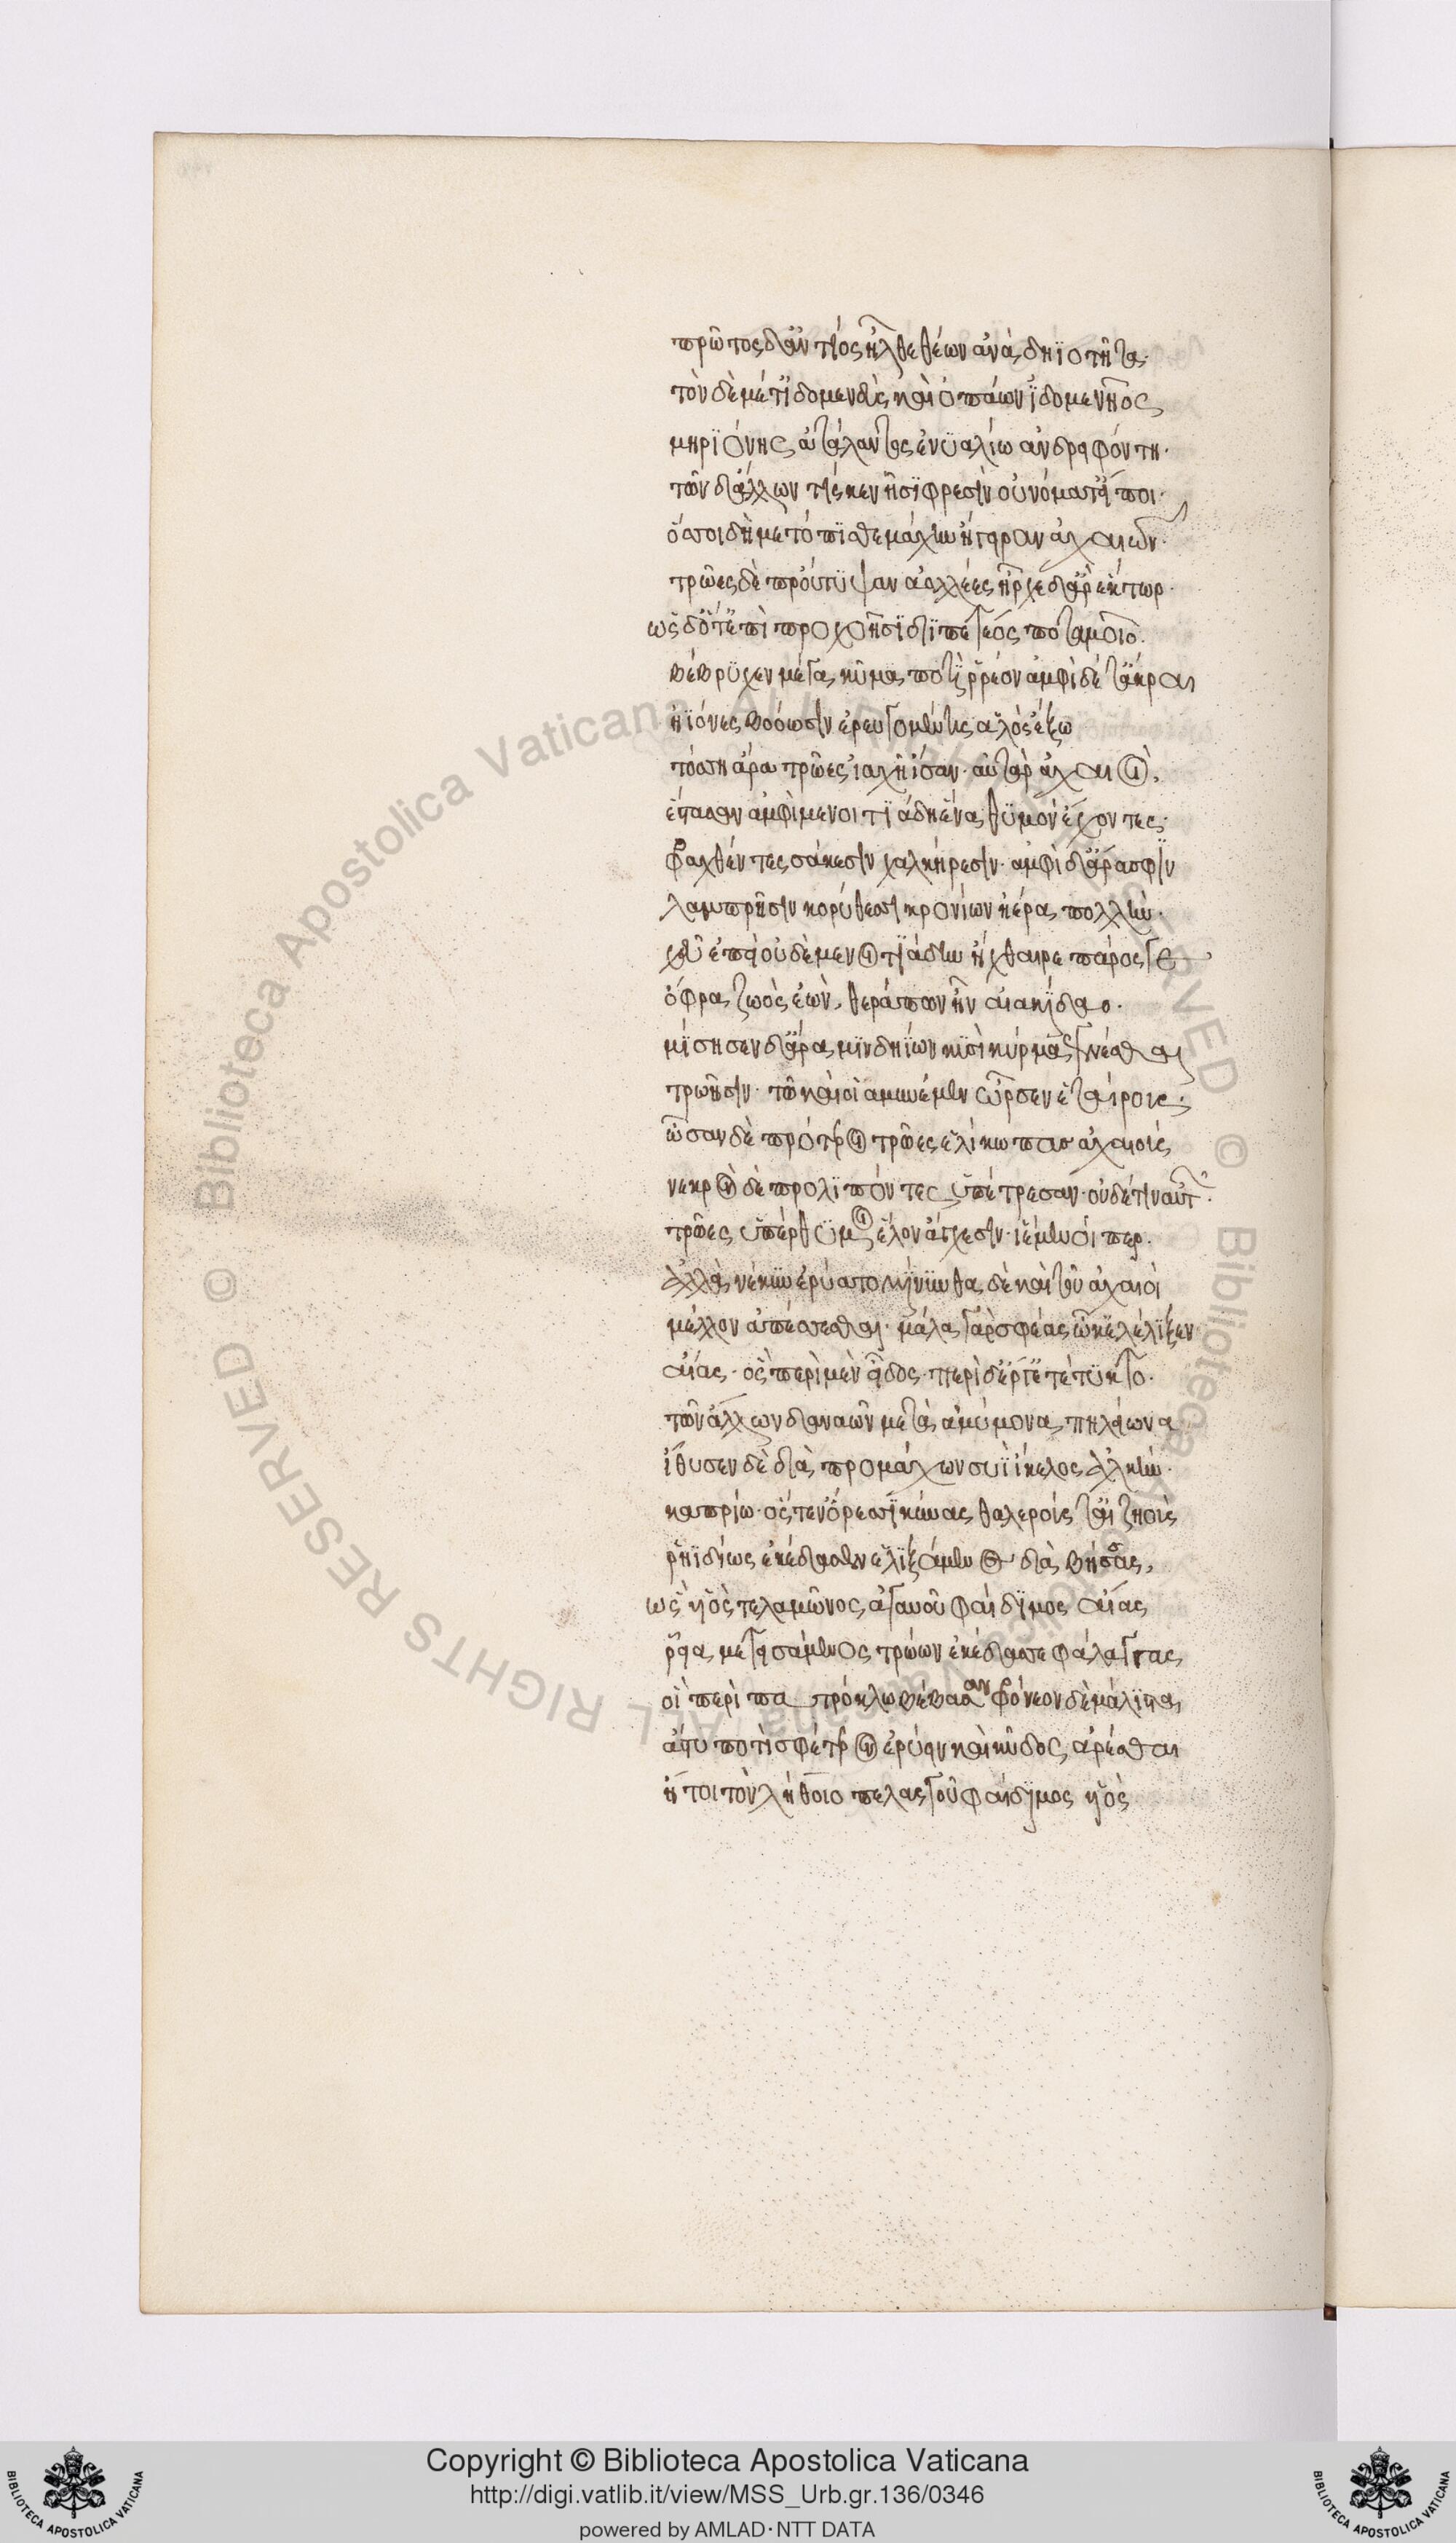 πρῶτος δ' ἀντίος ἦλθε θέων ἀνὰ δηϊοτῆτα·
τὸν δὲ μέτ' ἰδομενεὺς καὶ ὀπάων ἰδομενῆος
μηριόνης ἀτάλαντος ἐνυαλίω ἀνδρειφόντη·
τῶν δ' ἄλλων τίς κεν ᾗσι φρεσὶν οὐνόματ' εἴποι·
ὅσσοι δὴ μετόπισθε μάχην ἤγειραν ἀχαιῶν·
τρῶες δὲ προὔτυψαν ἀολλέες ἦρχε δ' ἄρ' ἕκτωρ·
ὡς δ' ὅτ' ἐπὶ προχοῇσι διιπετέος ποταμοῖο·
βέβρυχεν μέγα κῦμα ποτὶ ῥρέον ἀμφὶ δέ τ' ἄκραι
ἠϊόνες βοόωσιν ἐρευγομένης ἁλὸς ἔξω
τόσση ἄρα τρῶες ἰαχῇ ἴσαν· αὐτὰρ ἀχαιοὶ,
ἕστασαν ἀμφὶ μενοιτιάδη ἕνα θυμὸν ἔχοντες·
φραχθέντες σάκεσιν χαλκήρεσιν· ἀμφὶ δ' ἄρα σφιν
λαμπρῇσιν κορύθεσσι κρονίων ἠέρα πολλὴν·
χεῦ' ἐπεὶ οὐδὲ μενοιτιάδην ἤχθαιρε πάρος γε
ὄφρα ζωὸς ἐὼν, θεράπων ἦν αἰακίδαο·
μίσησεν δ' ἄρα μιν δηίων κυσὶ κύρμα γενέσθαι
τρωῇσιν· τῶ καί οἱ ἀμυνέμεν ὦρσεν ἑταίρους·
ὦσαν δὲ πρότεροι τρῶες ἑλίκωπας ἀχαιούς
νεκρὸν δὲ προλιπόντες ὑπέτρεσαν· οὐδέ τιν' αὐτῶν·
τρῶες ὑπέρθυμοι ἕλον ἔγχεσιν· ἱέμενοί περ.
ἀλλὰ νέκυν ἐρύοντο μίνυνθα δὲ καὶ τοῦ ἀχαιοὶ
μέλλον ἀπέσσεσθαι· μάλα γάρ σφέας ὦκ' ἐλέλιξεν
αἴας· ὃς περὶ μὲν εἶδος· περὶ δ' ἔργ' ἐτέτυκτο·
τῶν ἄλλων δαναῶν μετὰ ἀμύμονα πηλείωνα
ἴθυσεν δὲ διὰ προμάχων συῒ ἴκελος ἀλκὴν·
καπρίω· ὅς τ' ἐν ὄρεσσι κύνας θαλερούς τ' αἰζηοὺς
ῥηϊδίως ἐκέδασσεν ἑλιξάμενος διὰ βήσσας,
ὣς υἱὸς τελαμῶνος ἀγαυοῦ φαίδιμος αἴας
ῥεῖα μετεισάμενος τρώων ἐκέδασσε φάλαγγας
οἳ περὶ πα τρόκλω βέβασαν φρόνεον δὲ μάλιστα
ἄστυ ποτὶ σφέτερον ἐρύειν καὶ κῦδος ἀρέσθαι
ἤτοι τὸν λήθοιο πελασγοῦ φαίδιμος υἱὸς
Copyright © Biblioteca Apostolica Vaticana
http://digi.vatlib.it/view/MSS_Urb.gr.136/0346
powered by AMLAD·NTT DATA